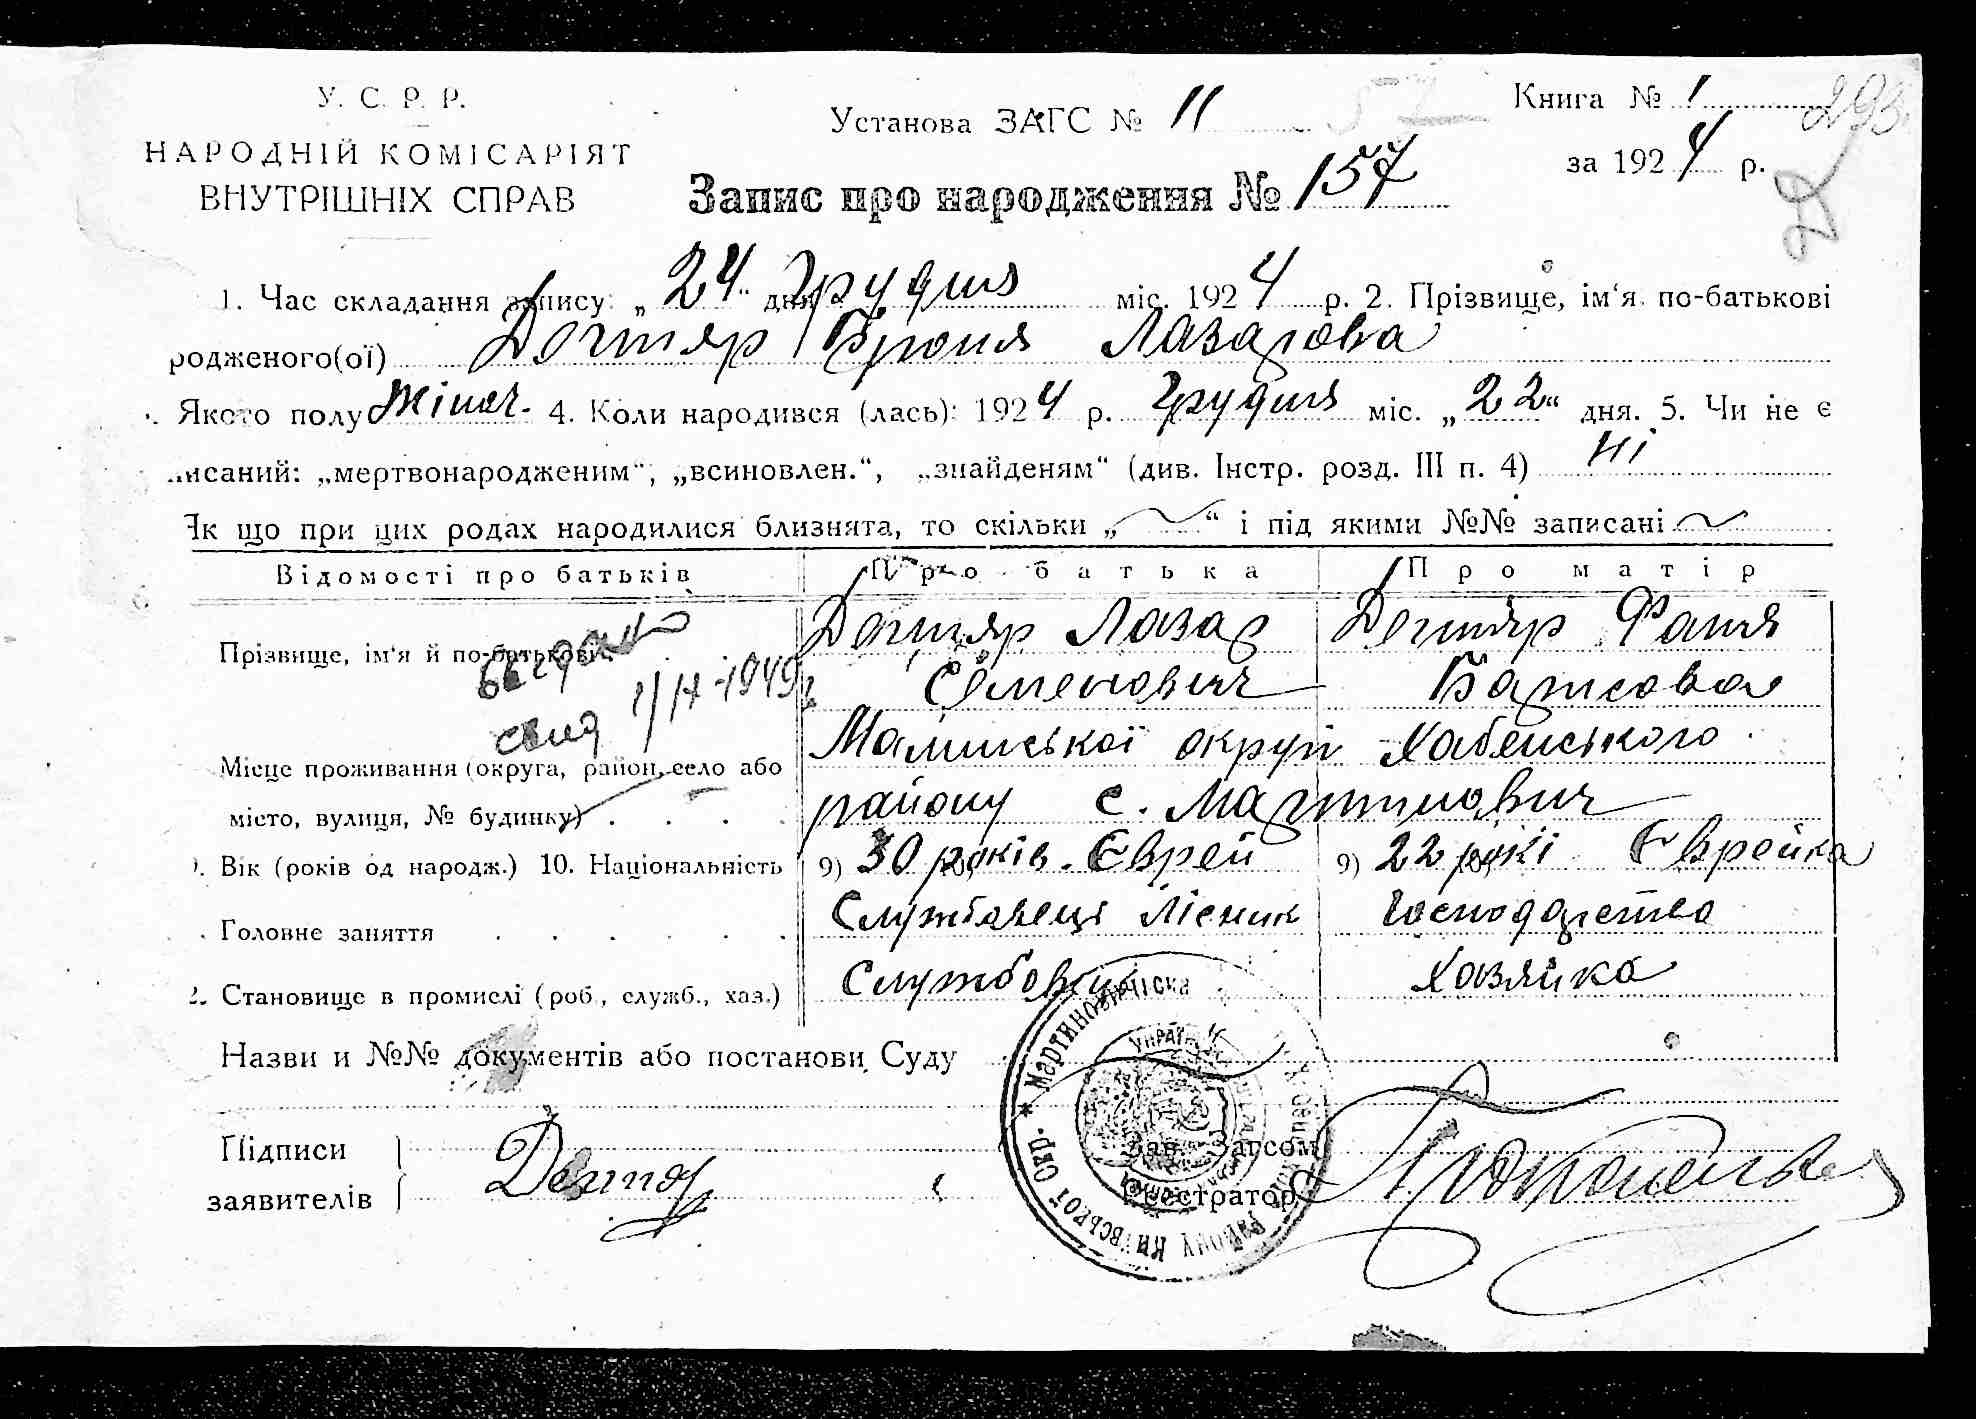 У. С. Р. Р.
НАРОДНІЙ КОМІСАРІЯТ
ВНУТРІШНІХ СПРАВ
Установа ЗАГС № 11
52
Книга № 1
293
за 1924 р.
Запис про народження № 157
1. Час складання запису: „24" дня Грудня міс. 1924 р. 2. Прізвище, ім'я по-батькові
родженого(ої) Дегтяр Броня Лазарова
Якого полу Жіноч. 4. Коли народився (лась): 1924 р. Грудня міс. „22" дня. 5. Чи не є
исаний: „мертвонародженим", „всиновлен.", „знайденям" (див. Інстр. розд. III п. 4) Ні
Як що при цих родах народилися близнята, то скільки „ " і під якими №№ записані
Відомості про батьків Про батька Про матір
Прізвище, ім'я й по-батькові Дегтяр Лазар Дегтяр Фаня
Семенович Борисовая
выдано
свид 1/IX-1949
Місце проживання (округа, район, село або Малинської округи Хабенського
місто, вулиця, № будинку) району с. Мартинович
9. Вік (років од народж.) 10. Національність 9) 30 років. Єврей 9) 22 рокі Єврейка
Головне заняття Службовець Лісник Господарство
2. Становище в промислі (роб., служб., хаз.) Службовец Хозяйка
Назви и №№ документів або постанови Суду
Підписи
заявителів Дегтяр
Зав. Загсом
Реєстратор
* Мартиновичіска Району Київської Окр.